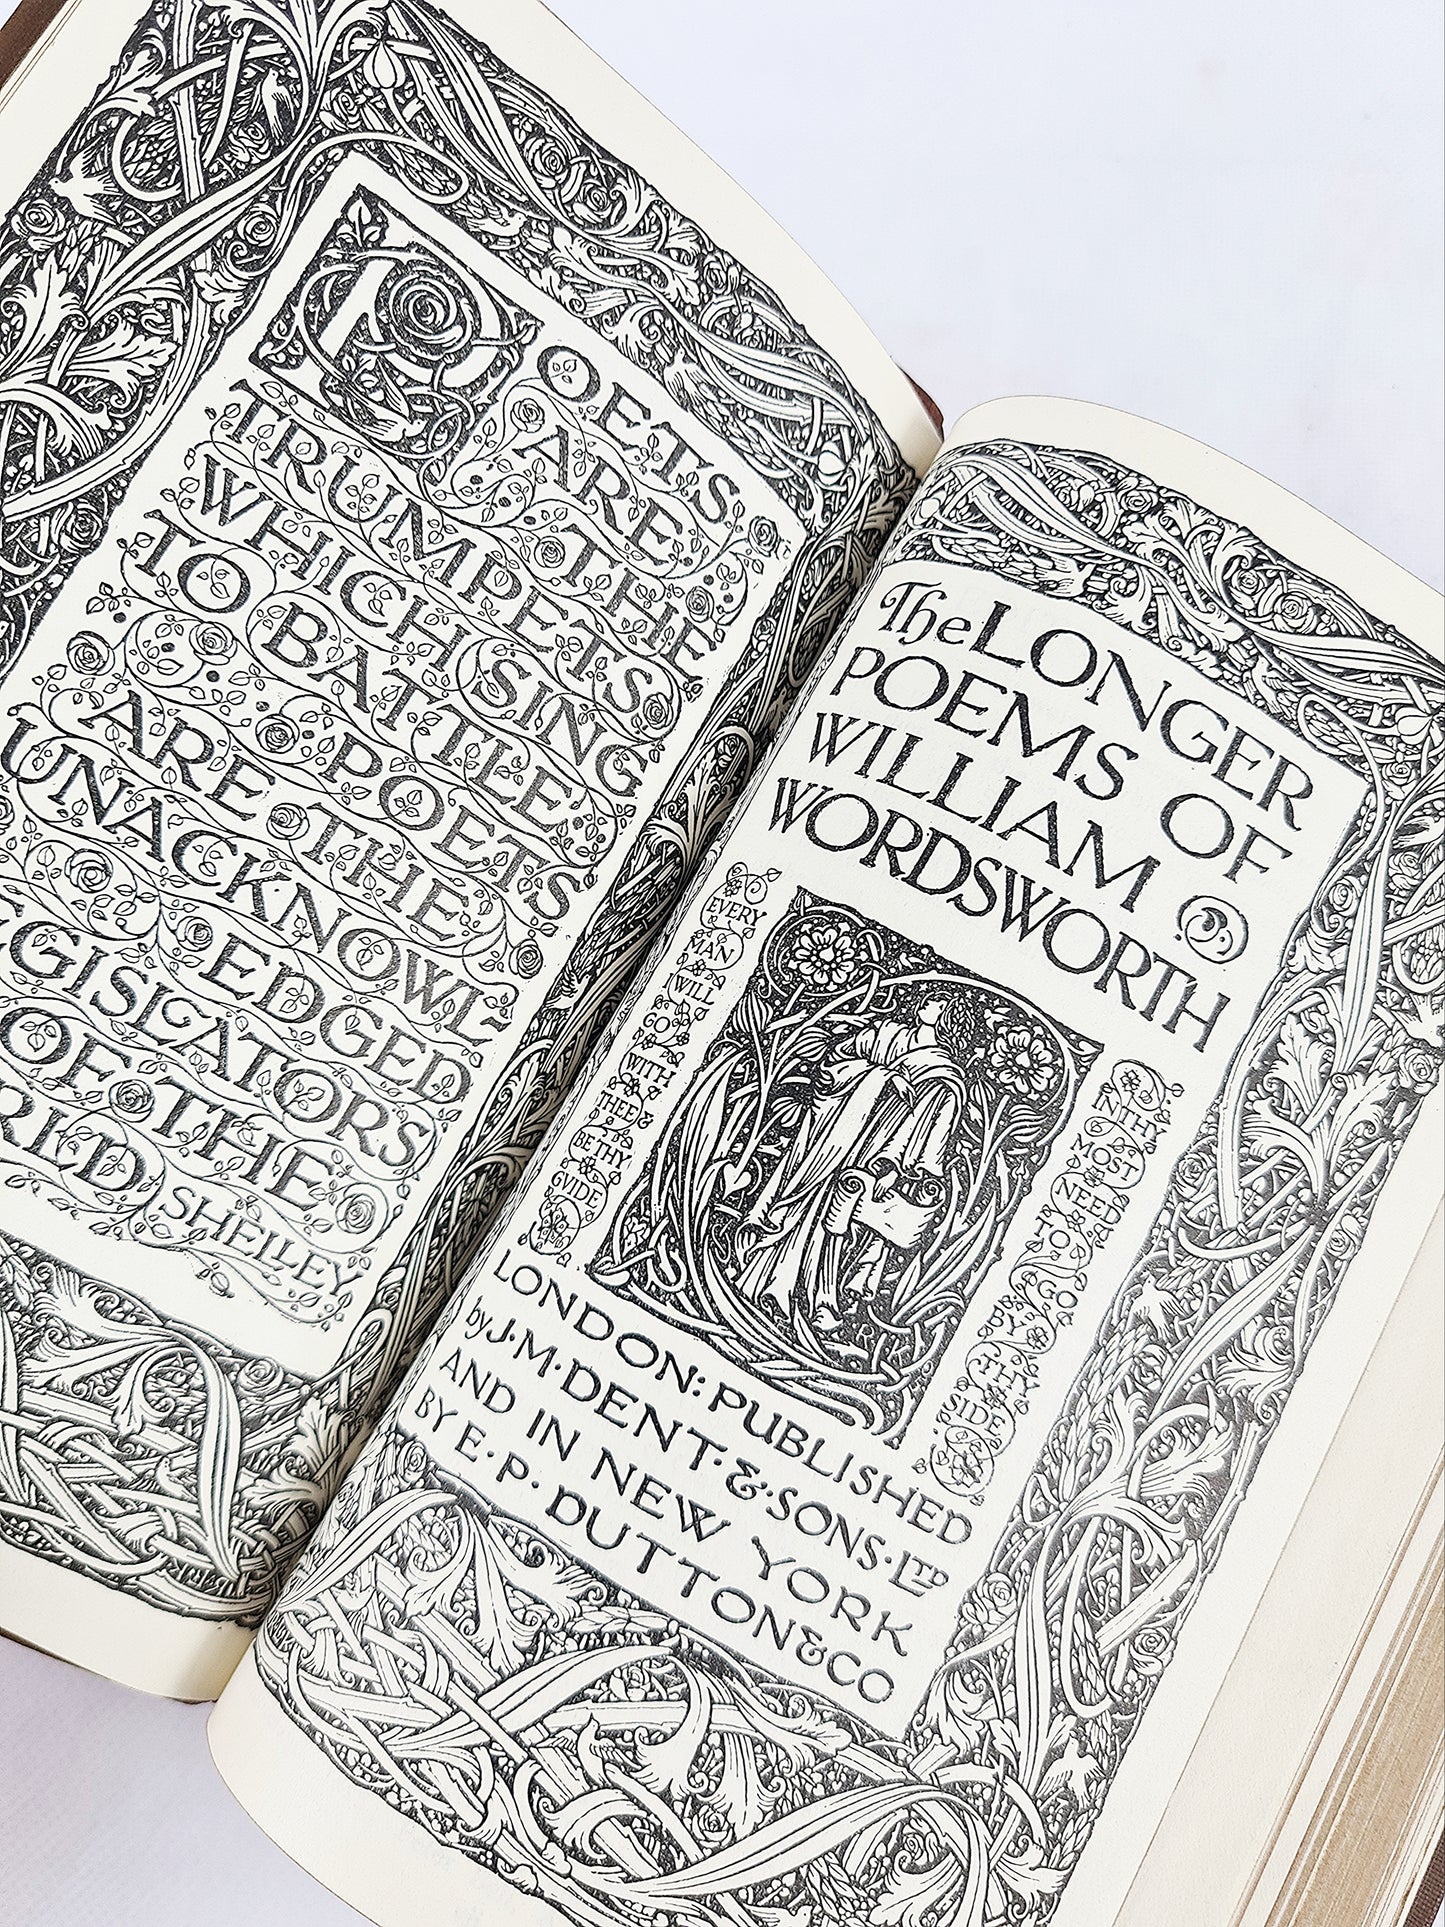 POETS
ARE THE
TRUMPETS
WHICH SING
TO BATTLE
POETS
ARE THE
UNACKNOWL-
EDGED
EGISLATORS
OF THE
RLD SHELLEY
The LONGER
POEMS OF
WILLIAM
WORDSWORTH
EVERY
MAN
I WILL
GO
WITH
THEE &
BE THY
GVIDE
IN THY
MOST
NEED
TO
GO
BY
THY
SIDE
LONDON: PUBLISHED
by J·M·DENT·&·SONS·LTD
AND IN NEW YORK
BY E·P·DUTTON & CO